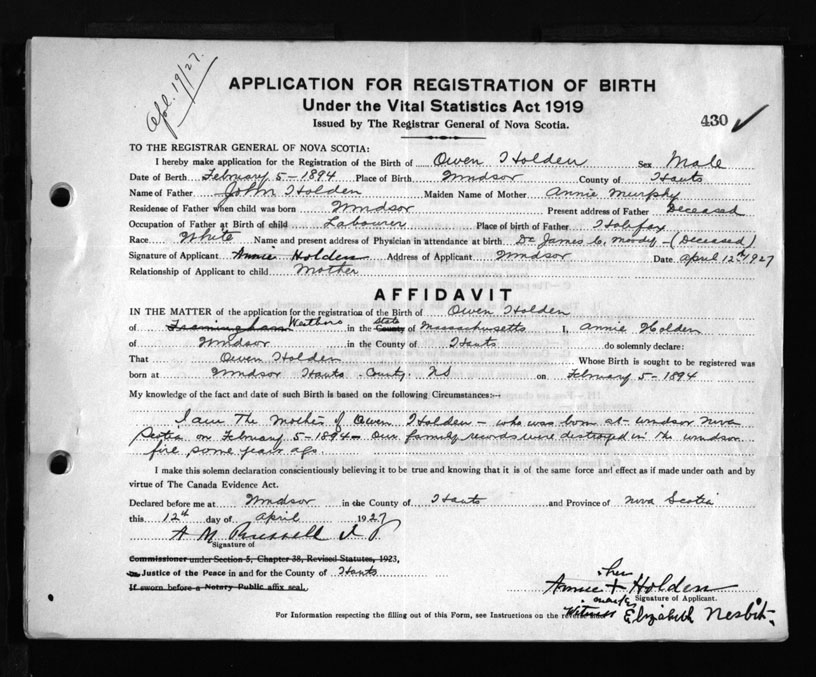 Apl. 19/27.
APPLICATION FOR REGISTRATION OF BIRTH
Under the Vital Statistics Act 1919
Issued by The Registrar General of Nova Scotia.
430 ✓
TO THE REGISTRAR GENERAL OF NOVA SCOTIA:
I hereby make application for the Registration of the Birth of Owen Holden Sex Male
Date of Birth February 5-1894 Place of Birth Windsor County of Hants
Name of Father John Holden Maiden Name of Mother Annie Murphy
Residense of Father when child was born Windsor Present address of Father Deceased
Occupation of Father at Birth of child Labourer Place of birth of Father Halifax
Race White Name and present address of Physician in attendance at birth Dr. James C. Moody - (Deceased)
Signature of Applicant Annie Holden Address of Applicant Windsor Date April 12th 1927
Relationship of Applicant to child Mother
AFFIDAVIT
IN THE MATTER of the application for the registration of the Birth of Owen Holden
of Framingham Westboro in the County State of Massachusetts I, Annie Holden
of Windsor in the County of Hants do solemnly declare:
That Owen Holden Whose Birth is sought to be registered was
born at Windsor Hants County NS on February 5-1894
My knowledge of the fact and date of such Birth is based on the following Circumstances:-
I am The mother of Owen Holden - who was born at Windsor Nova
Scotia on February 5-1894 - Our family records were destroyed in the Windsor
fire some years ago.
I make this solemn declaration conscientiously believing it to be true and knowing that it is of the same force and effect as if made under oath and by
virtue of The Canada Evidence Act.
Declared before me at Windsor in the County of Hants and Province of Nova Scotia
this 12th day of April 1927
A M Russell J P
Signature of
Commissioner under Section 5, Chapter 38, Revised Statutes, 1923,
Justice of the Peace in and for the County of Hants
If sworn before a Notary Public affix seal.
her
Annie + Holden
mark Signature of Applicant.
Witness Elizabeth Nesbit
For Information respecting the filling out of this Form, see Instructions on the reverse side